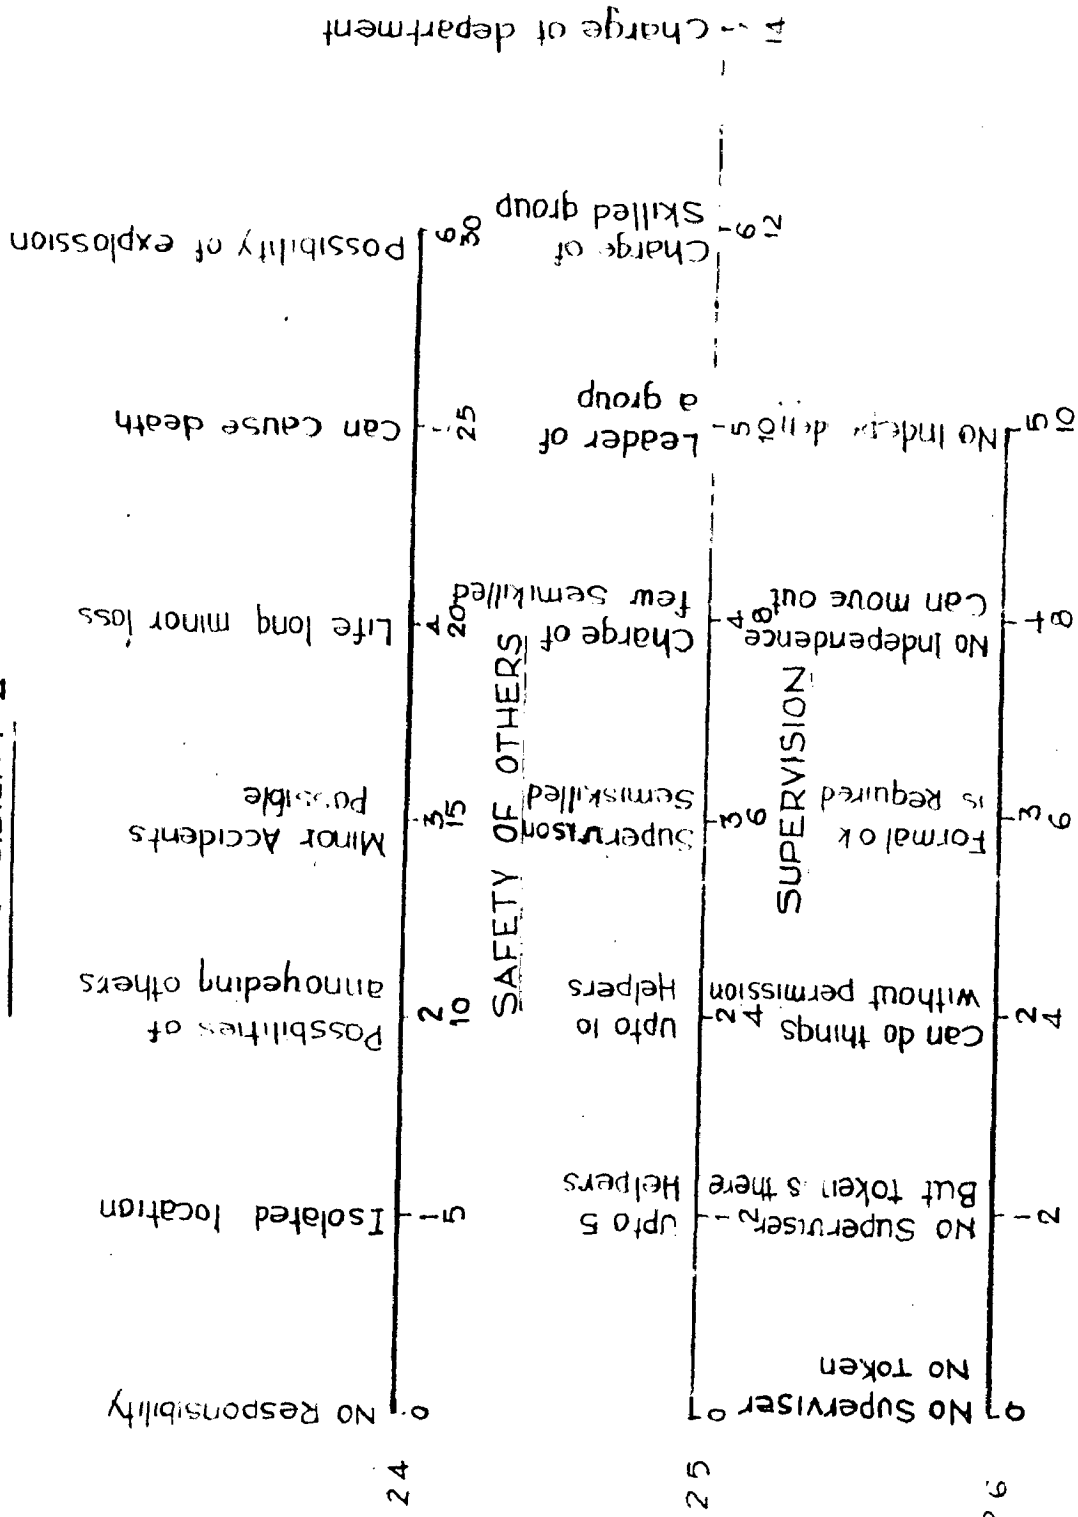 24
0
No Responsibility
1
5
Isolated location
2
10
Possbilities of
annoyeding others
3
15
Minor Accidents
Possible
4
20
Life long minor loss
25
Can Cause death
6
30
Possibility of explossion
SAFETY OF OTHERS
25
0
1
2
upto 5
Helpers
2
4
upto 10
Helpers
3
6
Supervison
Semiskilled
4
8
Charge of
few Semikilled
5
10
Leader of
a group
6
12
Charge of
Skilled group
14
Charge of department
SUPERVISION
26
0
No Superviser
No Token
1
2
No Superviser
But token is there
2
4
Can do things
without permission
3
6
Formal ok
is Required
8
No Independence
Can move out
5
10
No